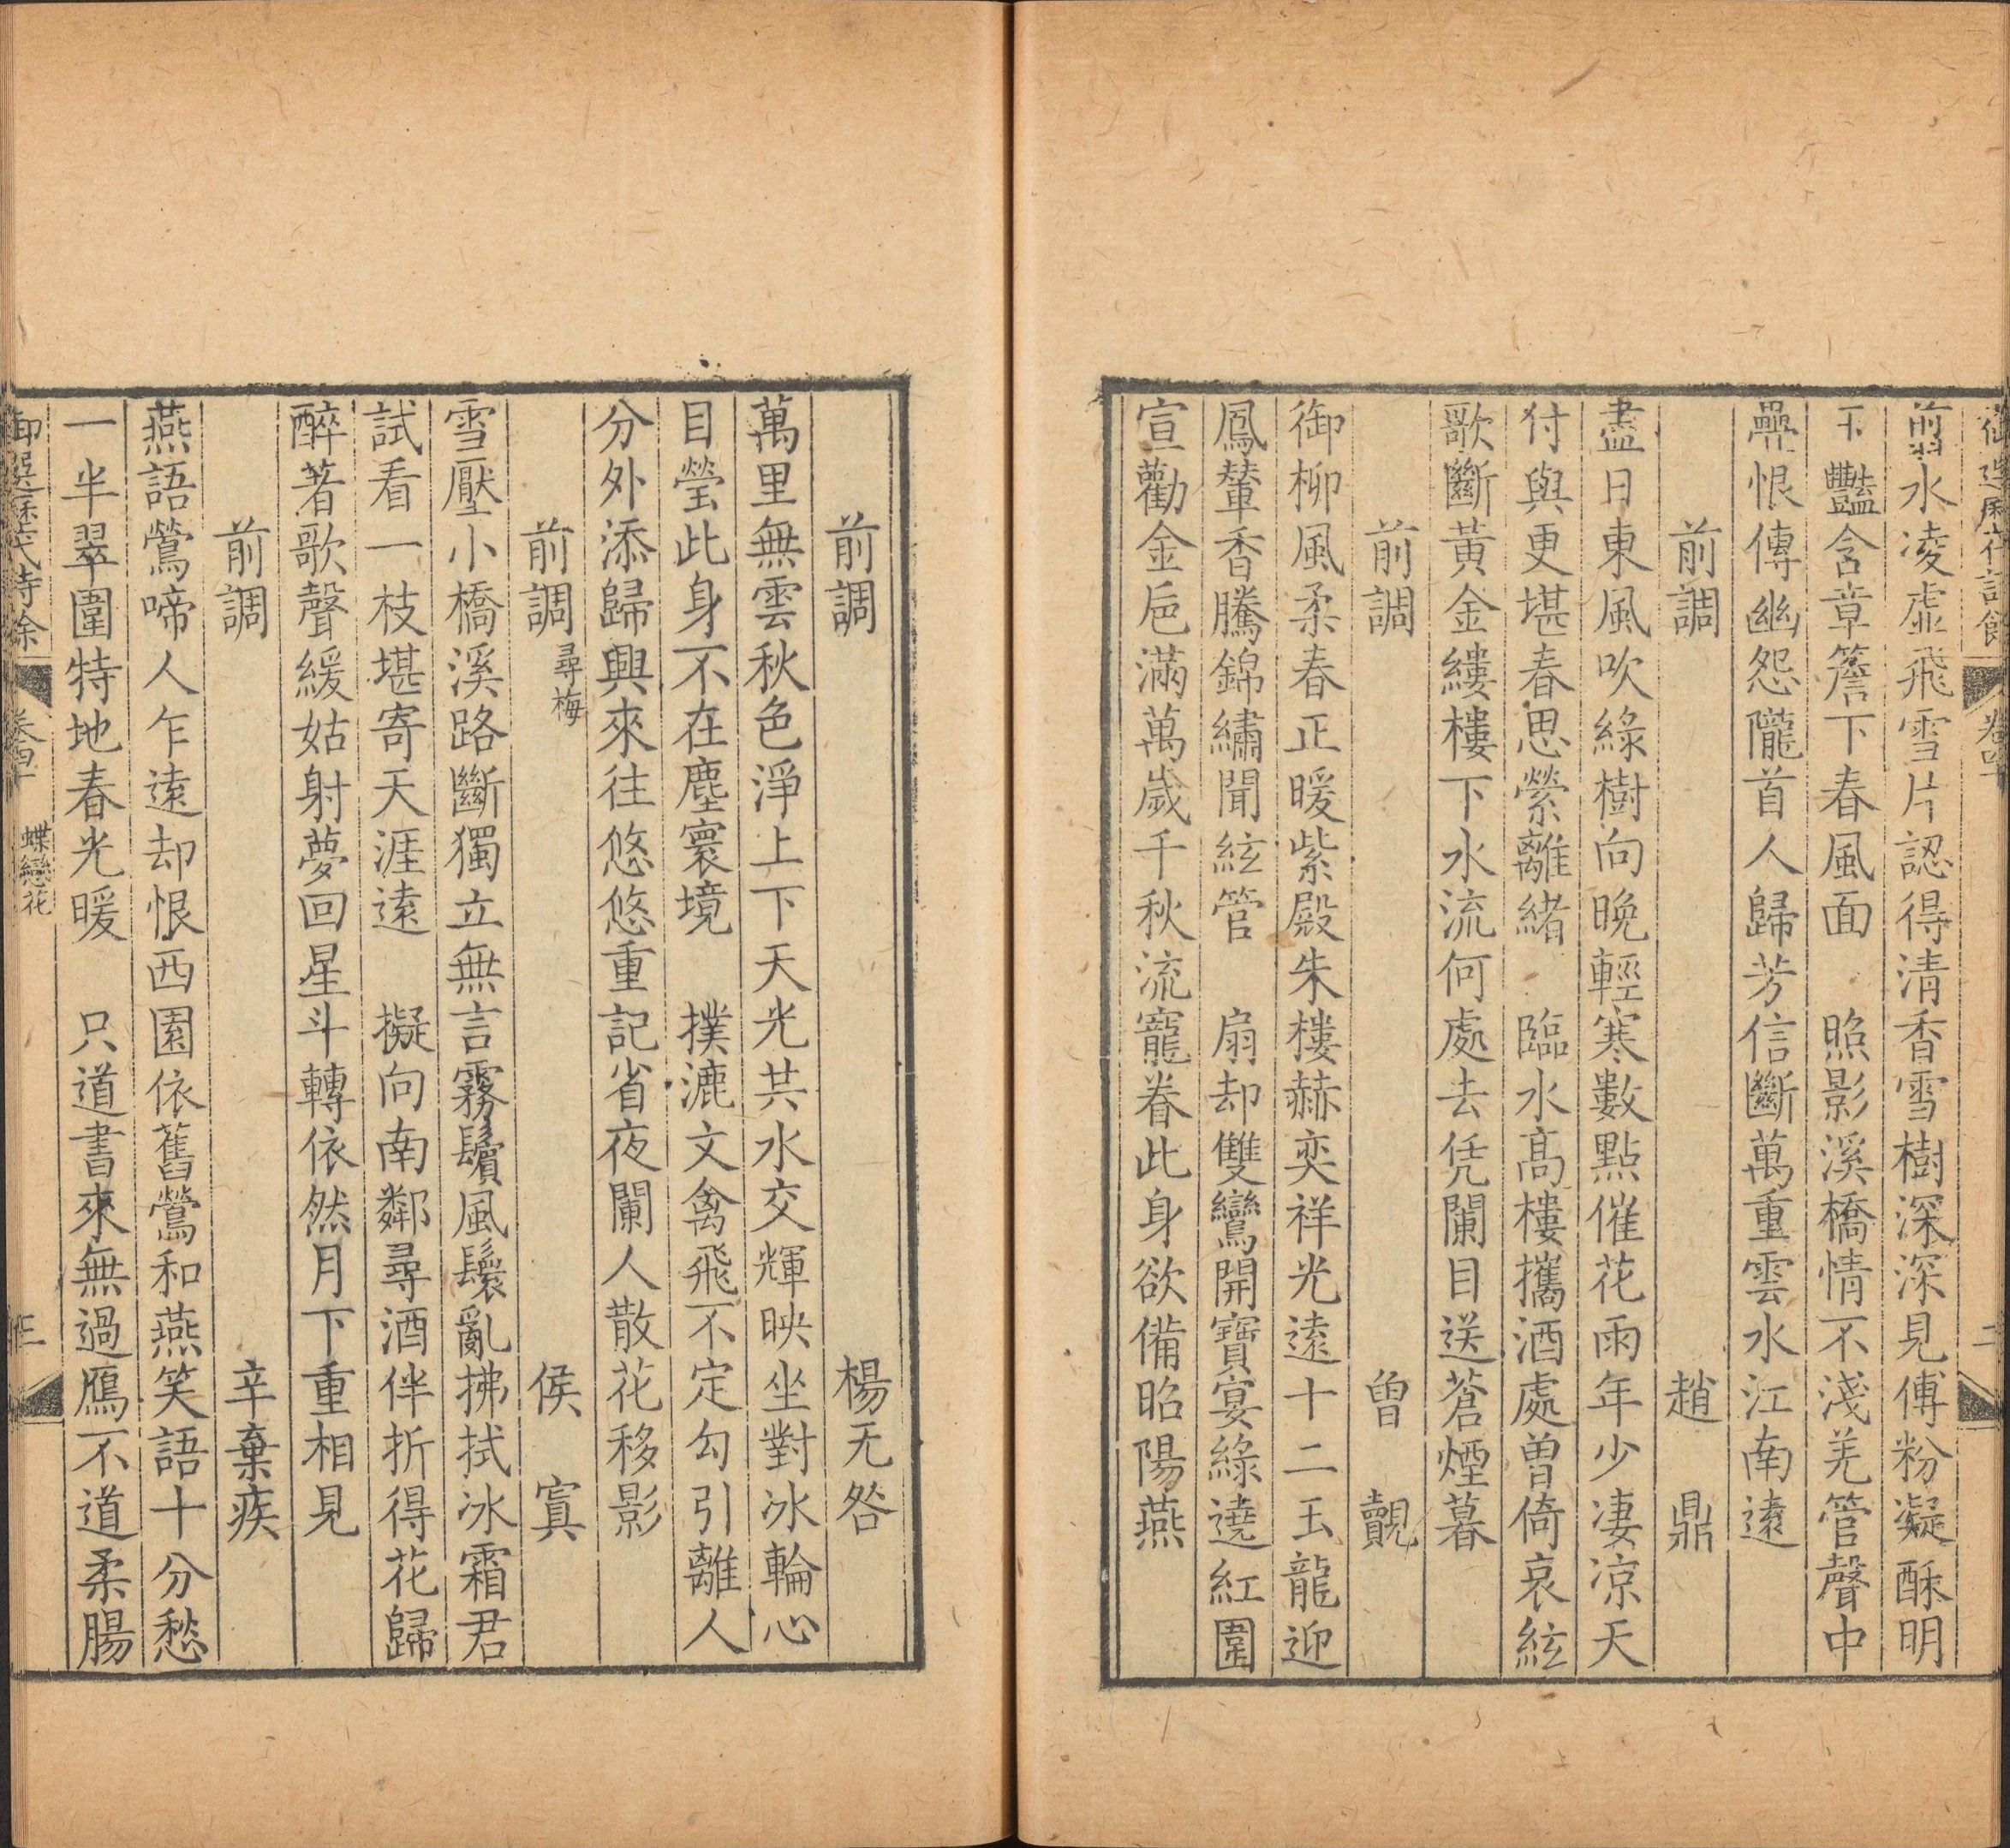 御選歷代詩餘 卷四十 二
前翦水凌虛飛雪片認得清香雪樹深深見傅粉凝酥明
玉豔含章簷下春風面 照影溪橋情不淺羌管聲中
疊恨傳幽怨隴首人歸芳信斷萬重雲水江南遠
前調 趙鼎
盡日東風吹綠樹向晚輕寒數點催花雨年少淒涼天
付與更堪春思縈離緒 臨水高樓攜酒處曾倚哀絃
歌斷黃金縷樓下水流何處去凭闌目送蒼煙暮
前調 曾覿
御柳風柔春正暖紫殿朱樓赫奕祥光遠十二玉龍迎
鳳輦香騰錦繡聞絃管 扇却雙鸞開寶宴綠遶紅圍
宣勸金巵滿萬歲千秋流寵眷此身欲備昭陽燕
前調 楊无咎
萬里無雲秋色淨上下天光共水交輝映坐對冰輪心
目瑩此身不在塵寰境 撲漉文禽飛不定勾引離人
分外添歸興來往悠悠重記省夜闌人散花移影
前調 尋梅 侯寘
雪壓小橋溪路斷獨立無言霧鬢風鬟亂拂拭冰霜君
試看一枝堪寄天涯遠 擬向南鄰尋酒伴折得花歸
醉著歌聲緩姑射夢回星斗轉依然月下重相見
前調 辛棄疾
燕語鶯啼人乍遠却恨西園依舊鶯和燕笑語十分愁
一半翠圍特地春光暖 只道書來無過鴈不道柔腸
御選歷代詩餘 卷四十 蝶戀花 三